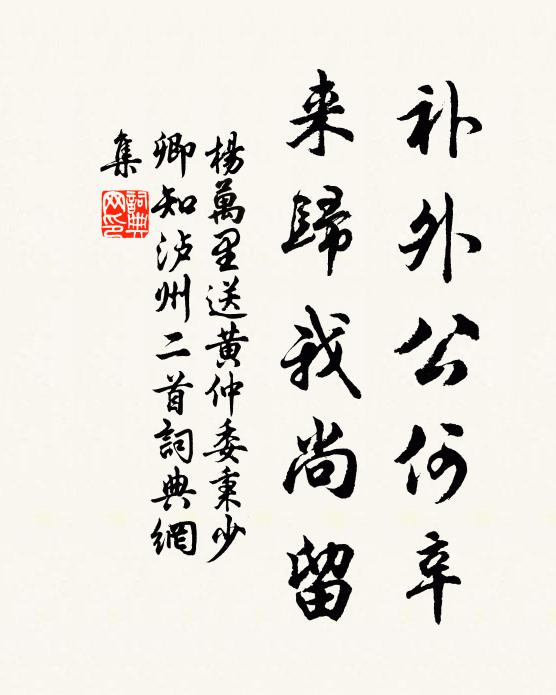 补外公何卒
来歸我尚留
楊萬里送黄仲委秉少
卿知泸州二首詞典網
集
詞典
网印